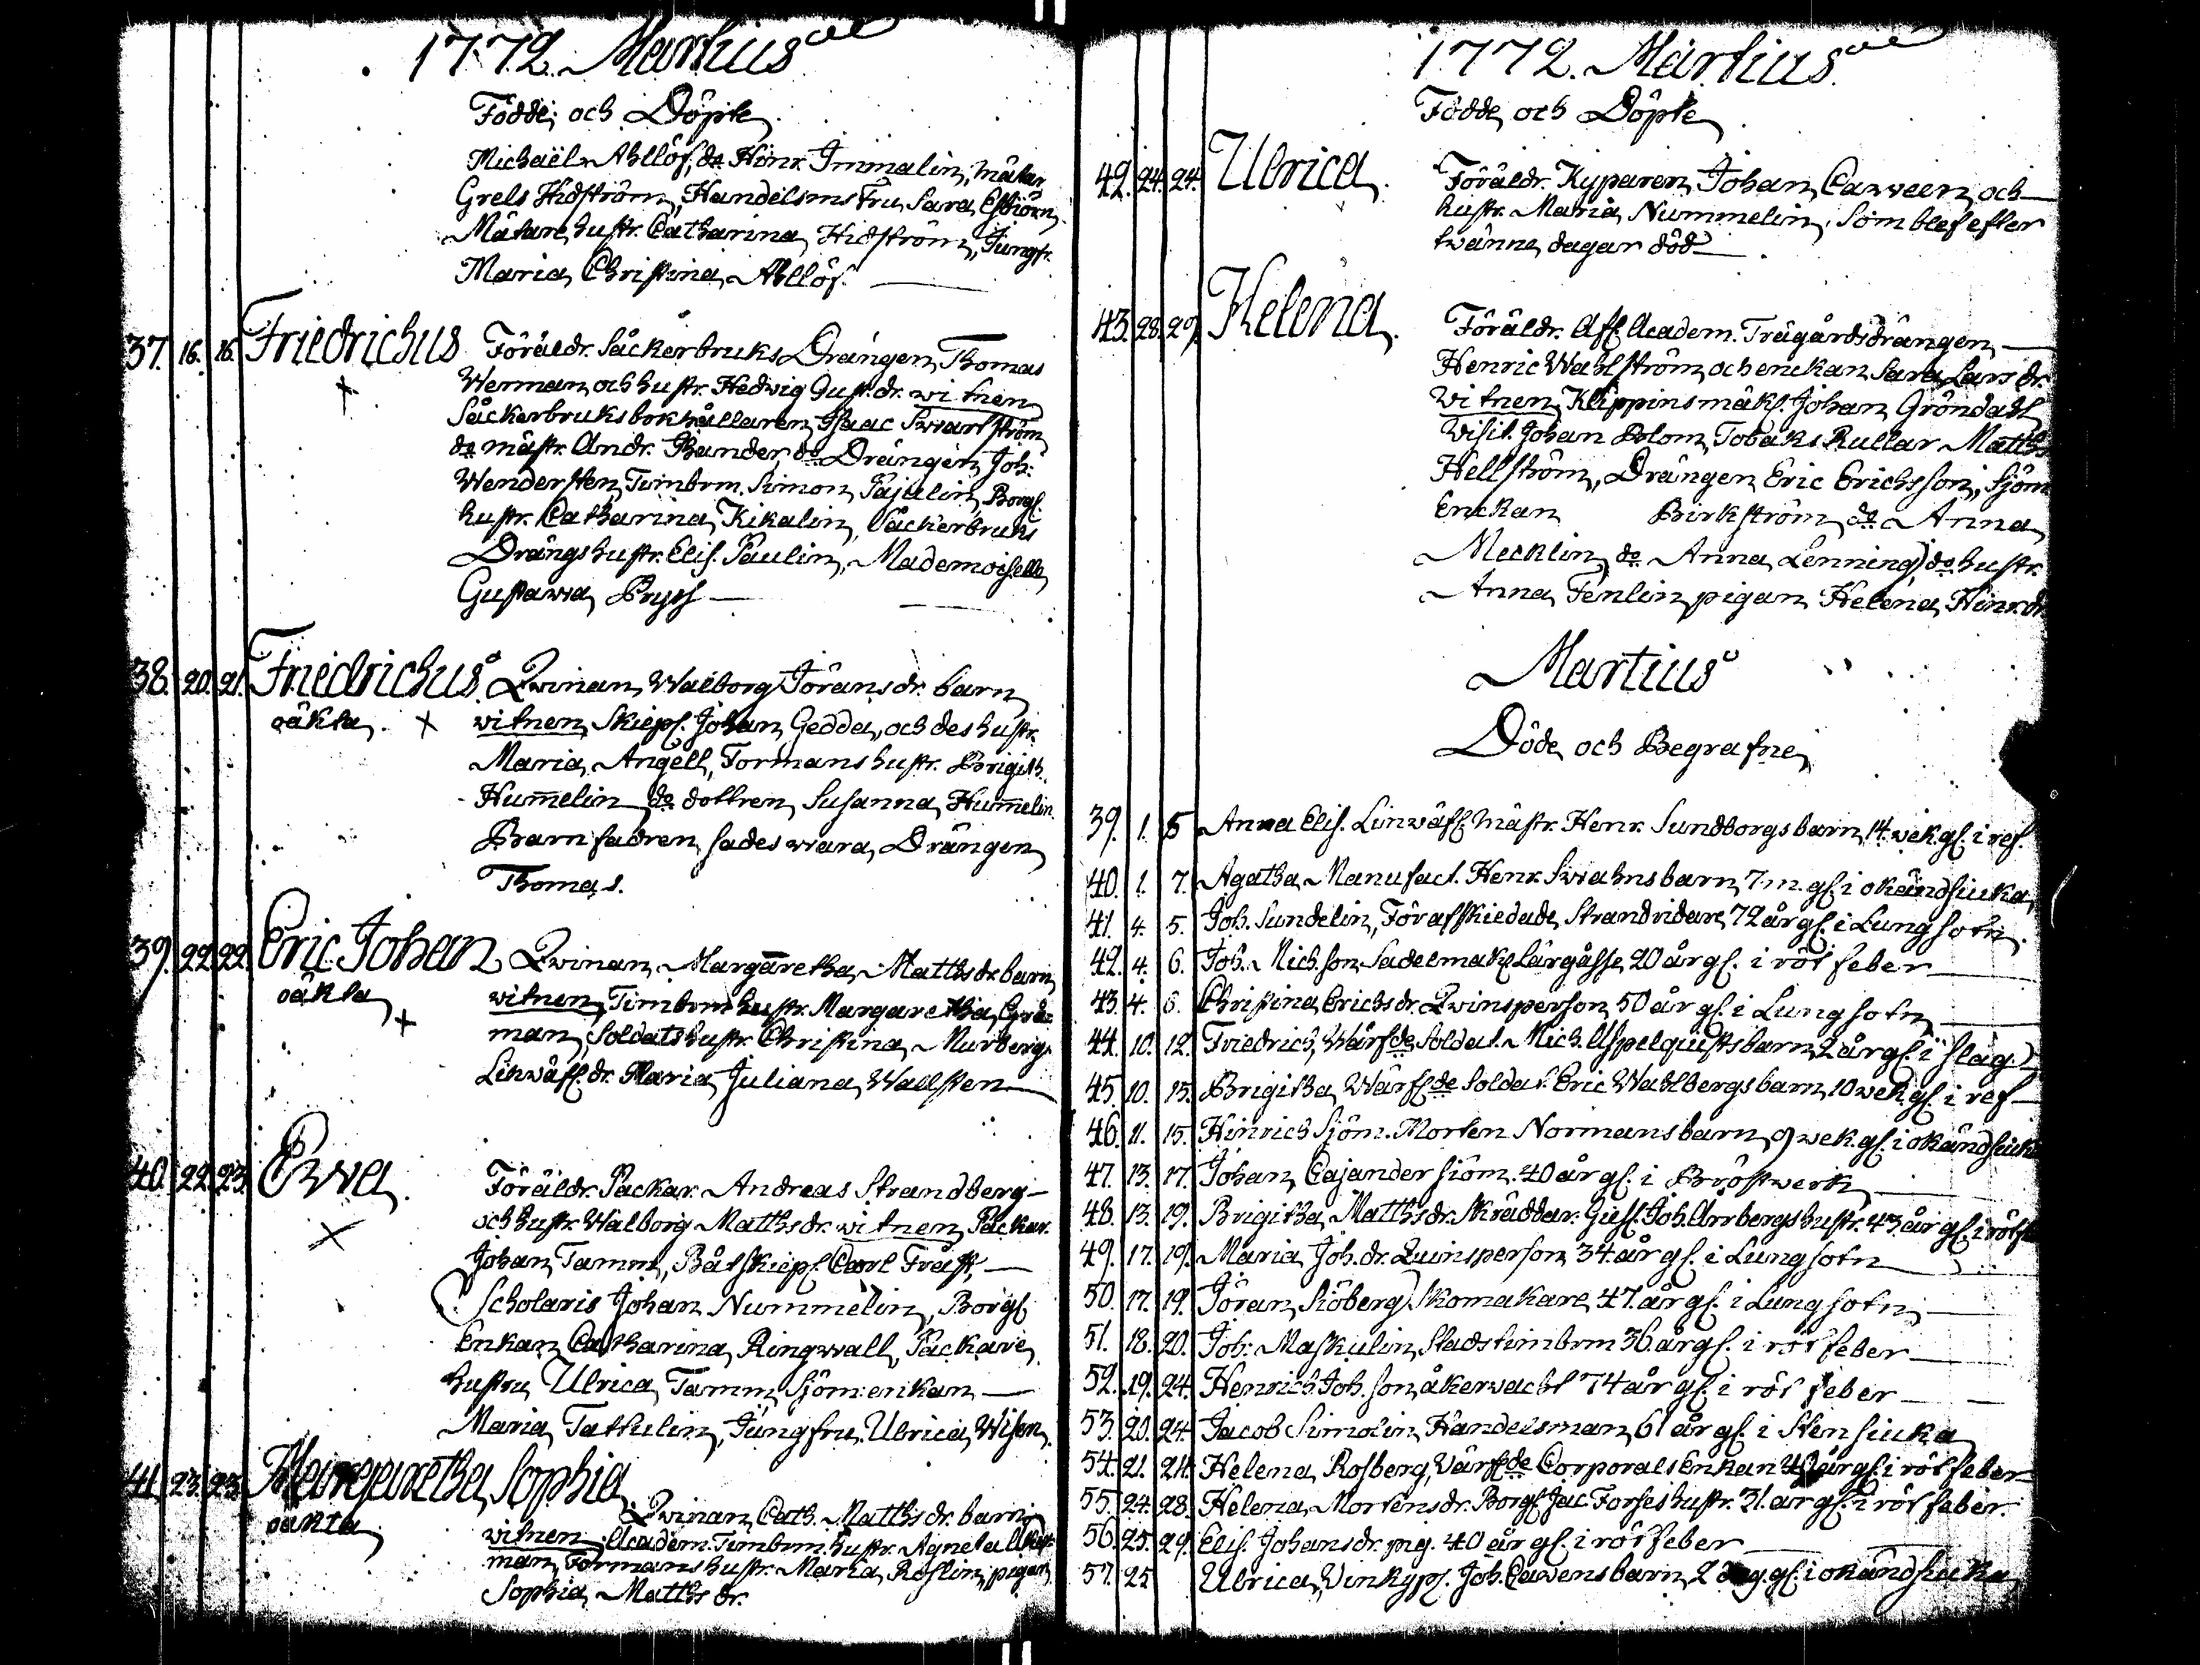 1772. Martius
Födde och Döpte
Michaël Ahllöf, do Hinr. Immalin, mätar
Grels Hidström, Handelsms Fru Sara Esbiörn
Mätare hustr. Catharina Hidström, Jungfr.
Maria Christina Ahllöf.
37. 16. 16. Friedrichus Föräldr. Såckerbruks Drängen Thomas
Werman och hustr. Hedwig Gust.dr. witnen
Såckerbruksbokhållaren Isaac Swartström
do mästr. Andr. Bander, do Drängen Joh.
Wendersten, Timbrm. Simon Pajulin, Borgs.
hustr. Catharina Kikalin, Såckerbruks
Drängshustr. Elis. Paulin, Mademoiselle
Gustawa Bryss
38. 20. 21. Friedrichus Qwinan Walborg Jöransdr. barn
oäkta witnen Skieps. Johan Gedda, och des hustr.
Maria Angell, Formans hustr. Brigith.
Hum̄elin do dottren Susanna Hum̄elin.
Barnfadren sades wara Drängen
Thomas.
39. 22. 22. Eric Johan Qwinan Margaretha Matthsdr. barn
oäkta witnen Timbrm hustr. Margaretha
man, Soldatshustr. Christina Murberg
Linwäf. dr. Maria Juliana Wallsten
40. 22. 23. Ewa Föräldr. Packar. Andreas Strandberg
och hustr. Walborg Matthsdr. witnen Packar.
Johan Tamm, Båtskiep. Carl Träsk,
Scholaris Johan Nummelin, Borgs.
Enkan Catharina Ringwall, Packare
hustru Ulrica Tamm Sjöm. enkan
Maria Tattulin, Jungfru Ulrica Wisen.
41. 23. 23. Margaretha Sophia
Qwinan Cath. Matthsdr. barn
oäkta witnen Academ. Timbrm. hustr. Agneta
man, Formanshustr. Maria Roslin, pigan
Sophia Matthsdr.
1772. Martius
Födde och Döpte
42. 24. 24. Ulrica. Föräldr. Kyparen Johan Caween och
hustr. Maria Nummelin, som blef efter
twänne dagar död
43. 28. 29. Helena. Föräldr. Afs. Academ. Trägårdsdrängen
Henric Wahlström och enckan Sara Larsdr.
witnen Klippinsmaks. Johan Gröndahl
Visit. Johan Blom, Tobaks Rullar Matths
Hellström, Drängen Eric Erichsson, Sjöm
Enckan Birkström do Anna
Mecklin, do Anna Lenning, do hustr.
Anna Fenlin pigan Helena Hinr.dr.
Martius
Döde och Begrafne
39. 1. 5 Anna Elis. Linwäfs. mästr. Henr. Sundborgs barn 14. wek. gl. i ref.
40. 1. 7. Agatha Manufact. Henr. Swahns barn 7 m. gl. i okänd siuka
41. 4. 5. Joh. Sundelin, Förafskiedade Strandridare 72 år gl. i Lungsotn.
42. 4. 6. Joh. Mich.son Sadelmak. Lärgåsse 20 år gl. i röt feber
43. 4. 8. Christina Erichsdr. Qwinsperson 50 år gl. i Lungsotn
44. 10. 12. Friedrich, Wärfde Soldat. Mich. Aspelquists barn 2 år gl. i slag.
45. 10. 15. Brigitha Wärfde Soldat. Eric Wahlbergs barn 10 wek. gl. i ref
46. 11. 15. Hinrich Sjöm. Morten Normans barn 9 wek. gl. i okänd siuka
47. 13. 17. Johan Cajander siöm. 40 år gl. i Bröstwerk
48. 13. 19. Brigitha Matthsdr. Skräddar. Gesl. Joh. Arrbergs hustr. 43 år gl. i rötfe
49. 17. 19. Maria Joh.dr. Quinsperson 34 år gl. i Lungsotn
50. 17. 19. Jöran Siöberg Skomakare 47. år gl. i Lungsotn
51. 18. 20. Joh. Maskulin Stadstimbrm 36. år gl. i röt feber
52. 19. 24. Henrich Joh.son åkerwacht 74 år gl. i röt feber
53. 20. 24. Jacob Simolin Handelsman 61 år gl. i Sten siuka
54. 21. 24. Helena Rosberg, Värfde Corporals Enkan år gl. i röt feber
55. 24. 28. Helena Mortensdr. Borgs. Jac. Forses hustr. 31. år gl. i röt feber.
56. 25. 29. Elis. Johansdr. pig. 40 år gl. i röt feber
57. 25 Ulrica Vinkyps. Joh. Cawens barn 2 dag. gl. i okänd siuka